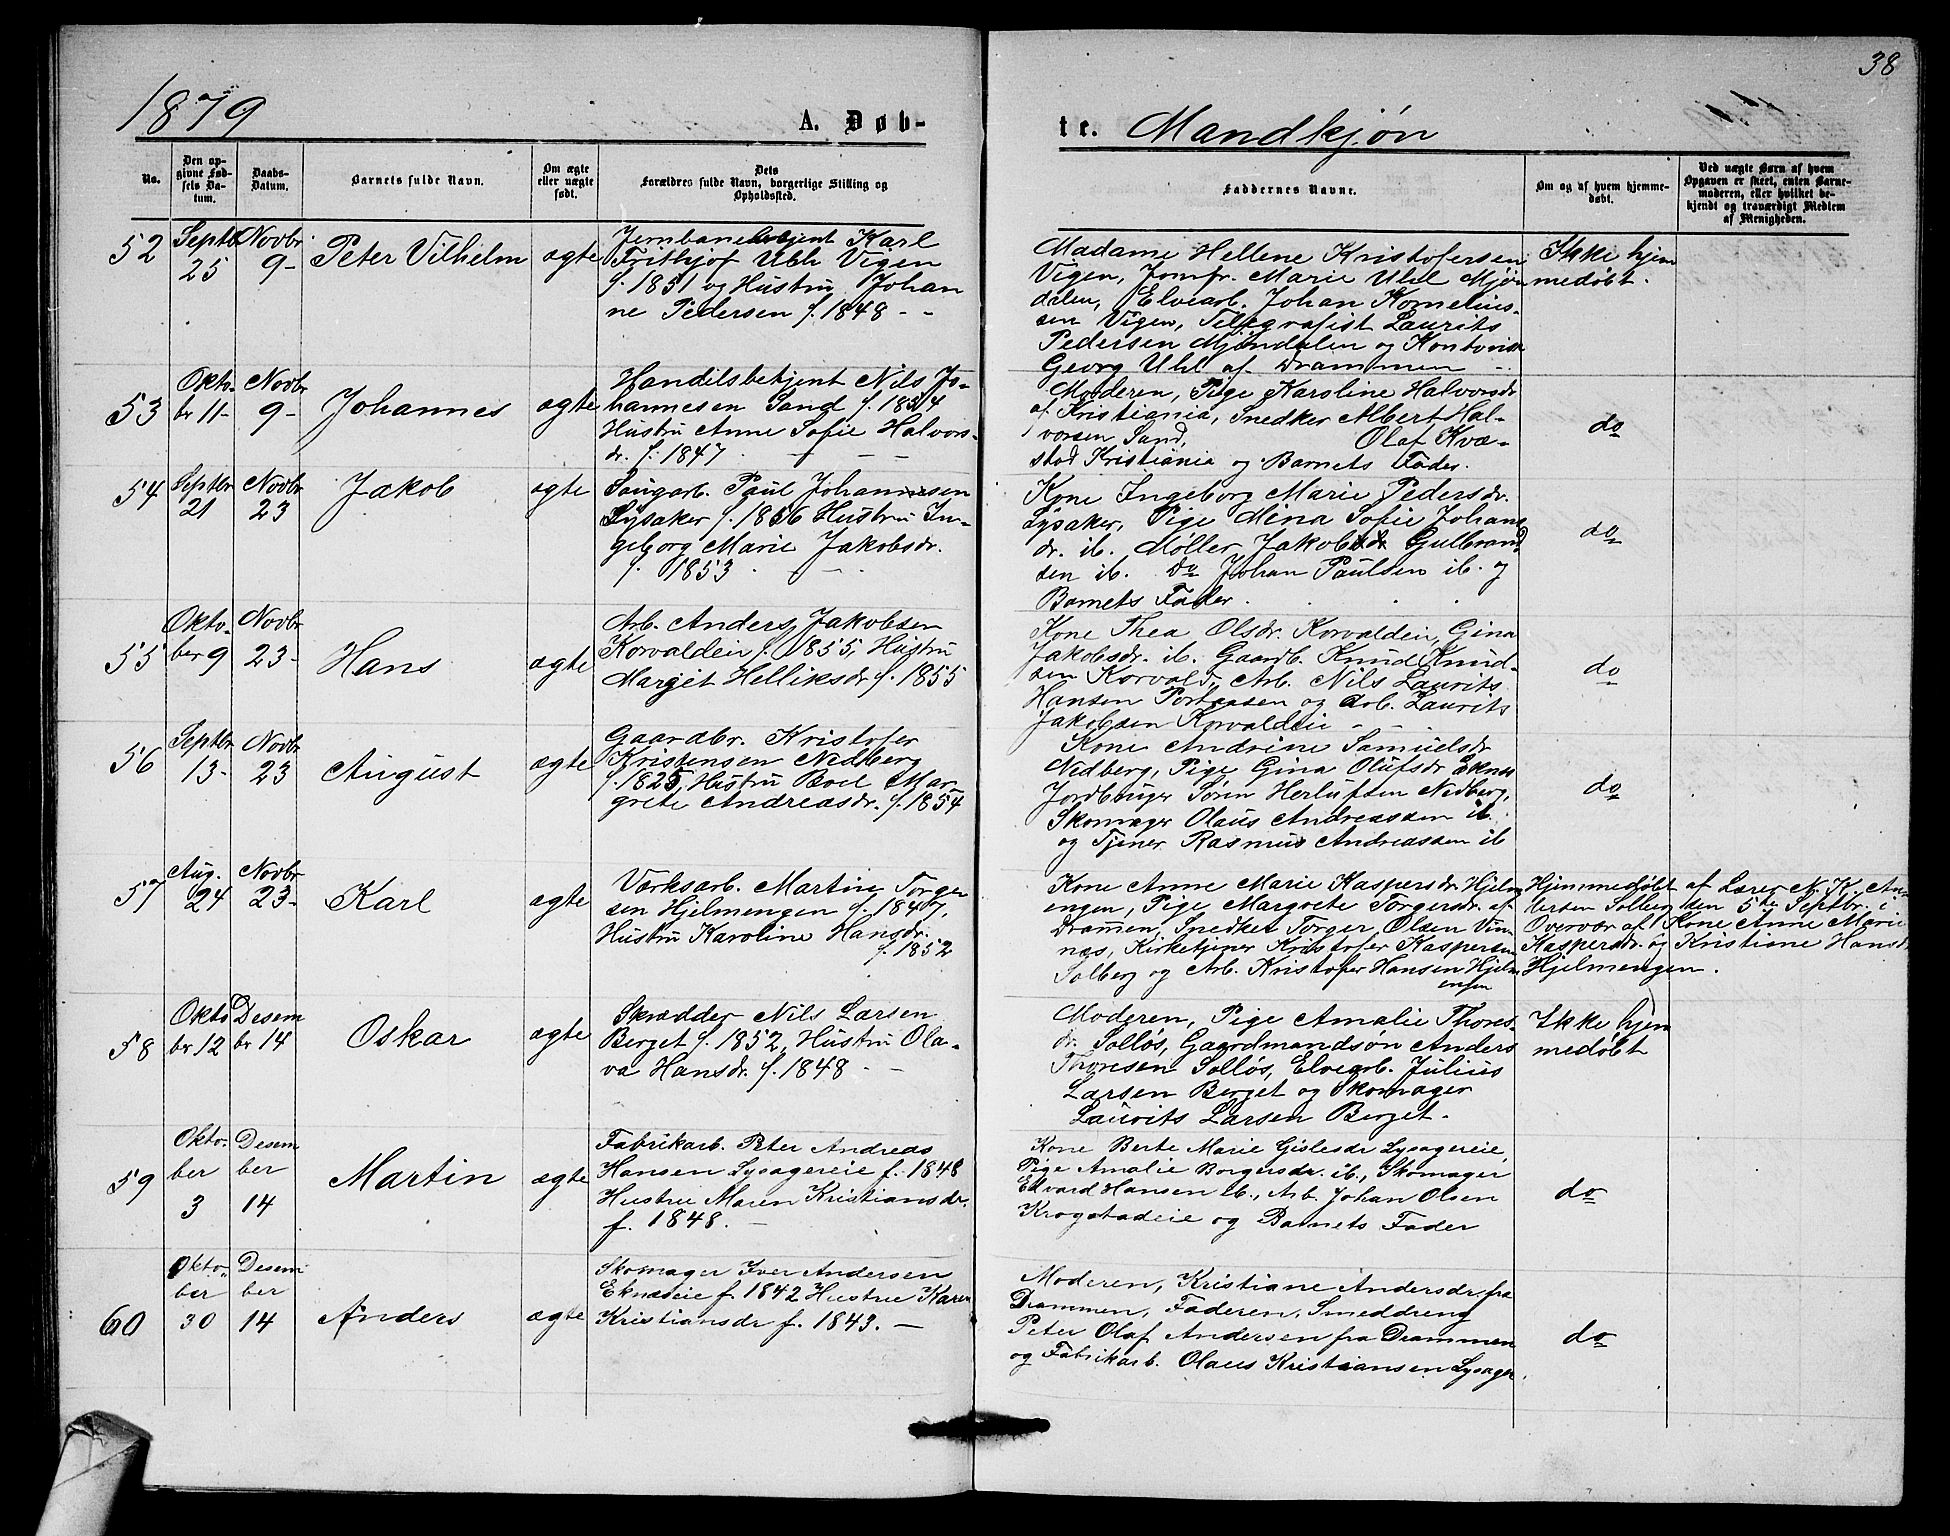 38
1879
A. Døb-
te. Mandkjøn
No.
Den op-
givne Fød-
sels Da-
tum.
Daabs-
Datum.
Barnets fulde Navn.
Om ægte
eller uægte
født.
Dets
Forældres fulde Navn, borgerlige Stilling og
Opholdssted.
Faddernes Navne.
Om og af hvem hjemme-
døbt.
Ved uægte Børn af hvem
Opgaven er skeet, enten Barne-
moderen, eller hvilket be-
kjendt og troværdigt Medlem
af Menigheden.
52
Septb
25
Novbr.
9-
Peter Vilhelm
ægte
Jernbanebetjent Karl
Frithjof Uhl Vigen
f. 1851 og Hustru Johan
ne Pedersen f. 1848 - -
Madame Hellene Kristofersen
Vigen, Jomfr. Marie Uhl Mjøn
dalen, Elvearb. Johan Kornelius-
sen Vigen, Telegrafist Laurits
Pedersen Mjøndalen og Kontorist
Georg Uhl af Drammen
Ikke hjem
medøbt.
53
Okto-
br 11-
Novbr
9-
Johannes
ægte
Handelsbetjent Nils Jo-
hannesen Sand f. 1854
Hustru Anne Sofie Halvors-
dr. f. 1847.
Moderen, Pige Karoline Halvorsdr
af Kristiania, Snedker Albert Hal-
vorsen Sand, Olaf Kvæ-
stad Kristiania og Barnets Fader.
do
54
Septbr
21
Novbr
23
Jakob
ægte
Saugarb. Paul Johannesen
Lysaker f. 1856 Hustru In-
geborg Marie Jakobsdr.
f. 1853
Kone Ingeborg Marie Pedersdr.
Lysaker, Pige Mina Sofie Johans
dr. ib. Møller Jakob Gulbrand
sen ib. Do Johan Paulsen ib. og
Barnets Fader.
do
55
Okto-
ber 9
Novbr
23-
Hans
ægte
Arb. Anders Jakobsen
Korvaldeie f. 1855, Hustru
Marjet Helliksdr f. 1855
Kone Thea Olsdr. Korvaldeie, Gina
Jakobsdr. ib. Gaardb. Knud Knud-
sen Korvald, Arb. Nils Laurits
Hansen Portaasen og Arb. Laurits
Jakobsen Korvaldeie
do
56
Septbr
13-
Novbr
23
August
ægte
Gaardbr. Kristofer
Kristensen Nedberg
f. 1825, Hustru Boel Mar
grete Andreasdr. f. 1854
Kone Andrine Samuelsdr
Nedberg, Pige Gina Olufsdr Eknes
Jordbruger Søren Herlufsen Nedberg,
Skomager Olaus Andreassen ib.
og Tjener Rasmus Andreassen ib
do
57
Aug.
24
Novbr
23-
Karl
ægte
Værksarb. Martin Torger
sen Hjelmengen f. 1847.
Hustru Karoline Hansdr.
f. 1852
Kone Anne Marie Kaspersdr. Hjelm
engen, Pige Margrete Torgersdr. af
Dramen, Snedker Torger Olsen Vin
næs, Kirketjener Kristofer Kaspersen
Solberg og Arb. Kristofer Hansen Hjelm
engen
Hjemmedøbt af Lærer N. K. An-
dersen Solberg den 5te Septbr. i
Overvær af Kone Anne Marie
Kaspersdr. og Kristiane Hansdr
Hjelmengen.
58
Okto
br 12
Desem
br 14
Oskar
ægte
Skrædder Nils Larsen
Berget f. 1852, Hustru Ola-
va Hansdr. f. 1848 -
Moderen, Pige Amalie Thores-
dr. Solløs, Gaardmandsøn Anders
Thoresen Solløs, Elvearb. Julius
Larsen Berget og Skomager
Laurits Larsen Berget.
Ikke hjem
medøbt
59
Okto-
ber
3
Desem
ber
14
Martin
ægte
Fabrikarb. Peter Andreas
Hansen Lysagereie f. 1848
Hustru Maren Kristiansdr.
f. 1848. -
Kone Berte Marie Gislesdr Lysagereie,
Pige Amalie Borgersdr. ib., Skomager
Edvard Hansen ib., Arb. Johan Olsen
Krogstadeie og Barnets Fader
do
60
Okto-
ber
30
Desem
ber
14
Anders
ægte
Skomager Iver Andersen
Eknæseie f. 1842 Hustru Karen
Kristiansdr f. 1843. -
Moderen, Kristiane Andersdr. fra
Drammen, Faderen, Smeddreng
Peter Olaf Andersen fra Drammen
og Fabrikarb. Olaus Kristiansen Lysager
do